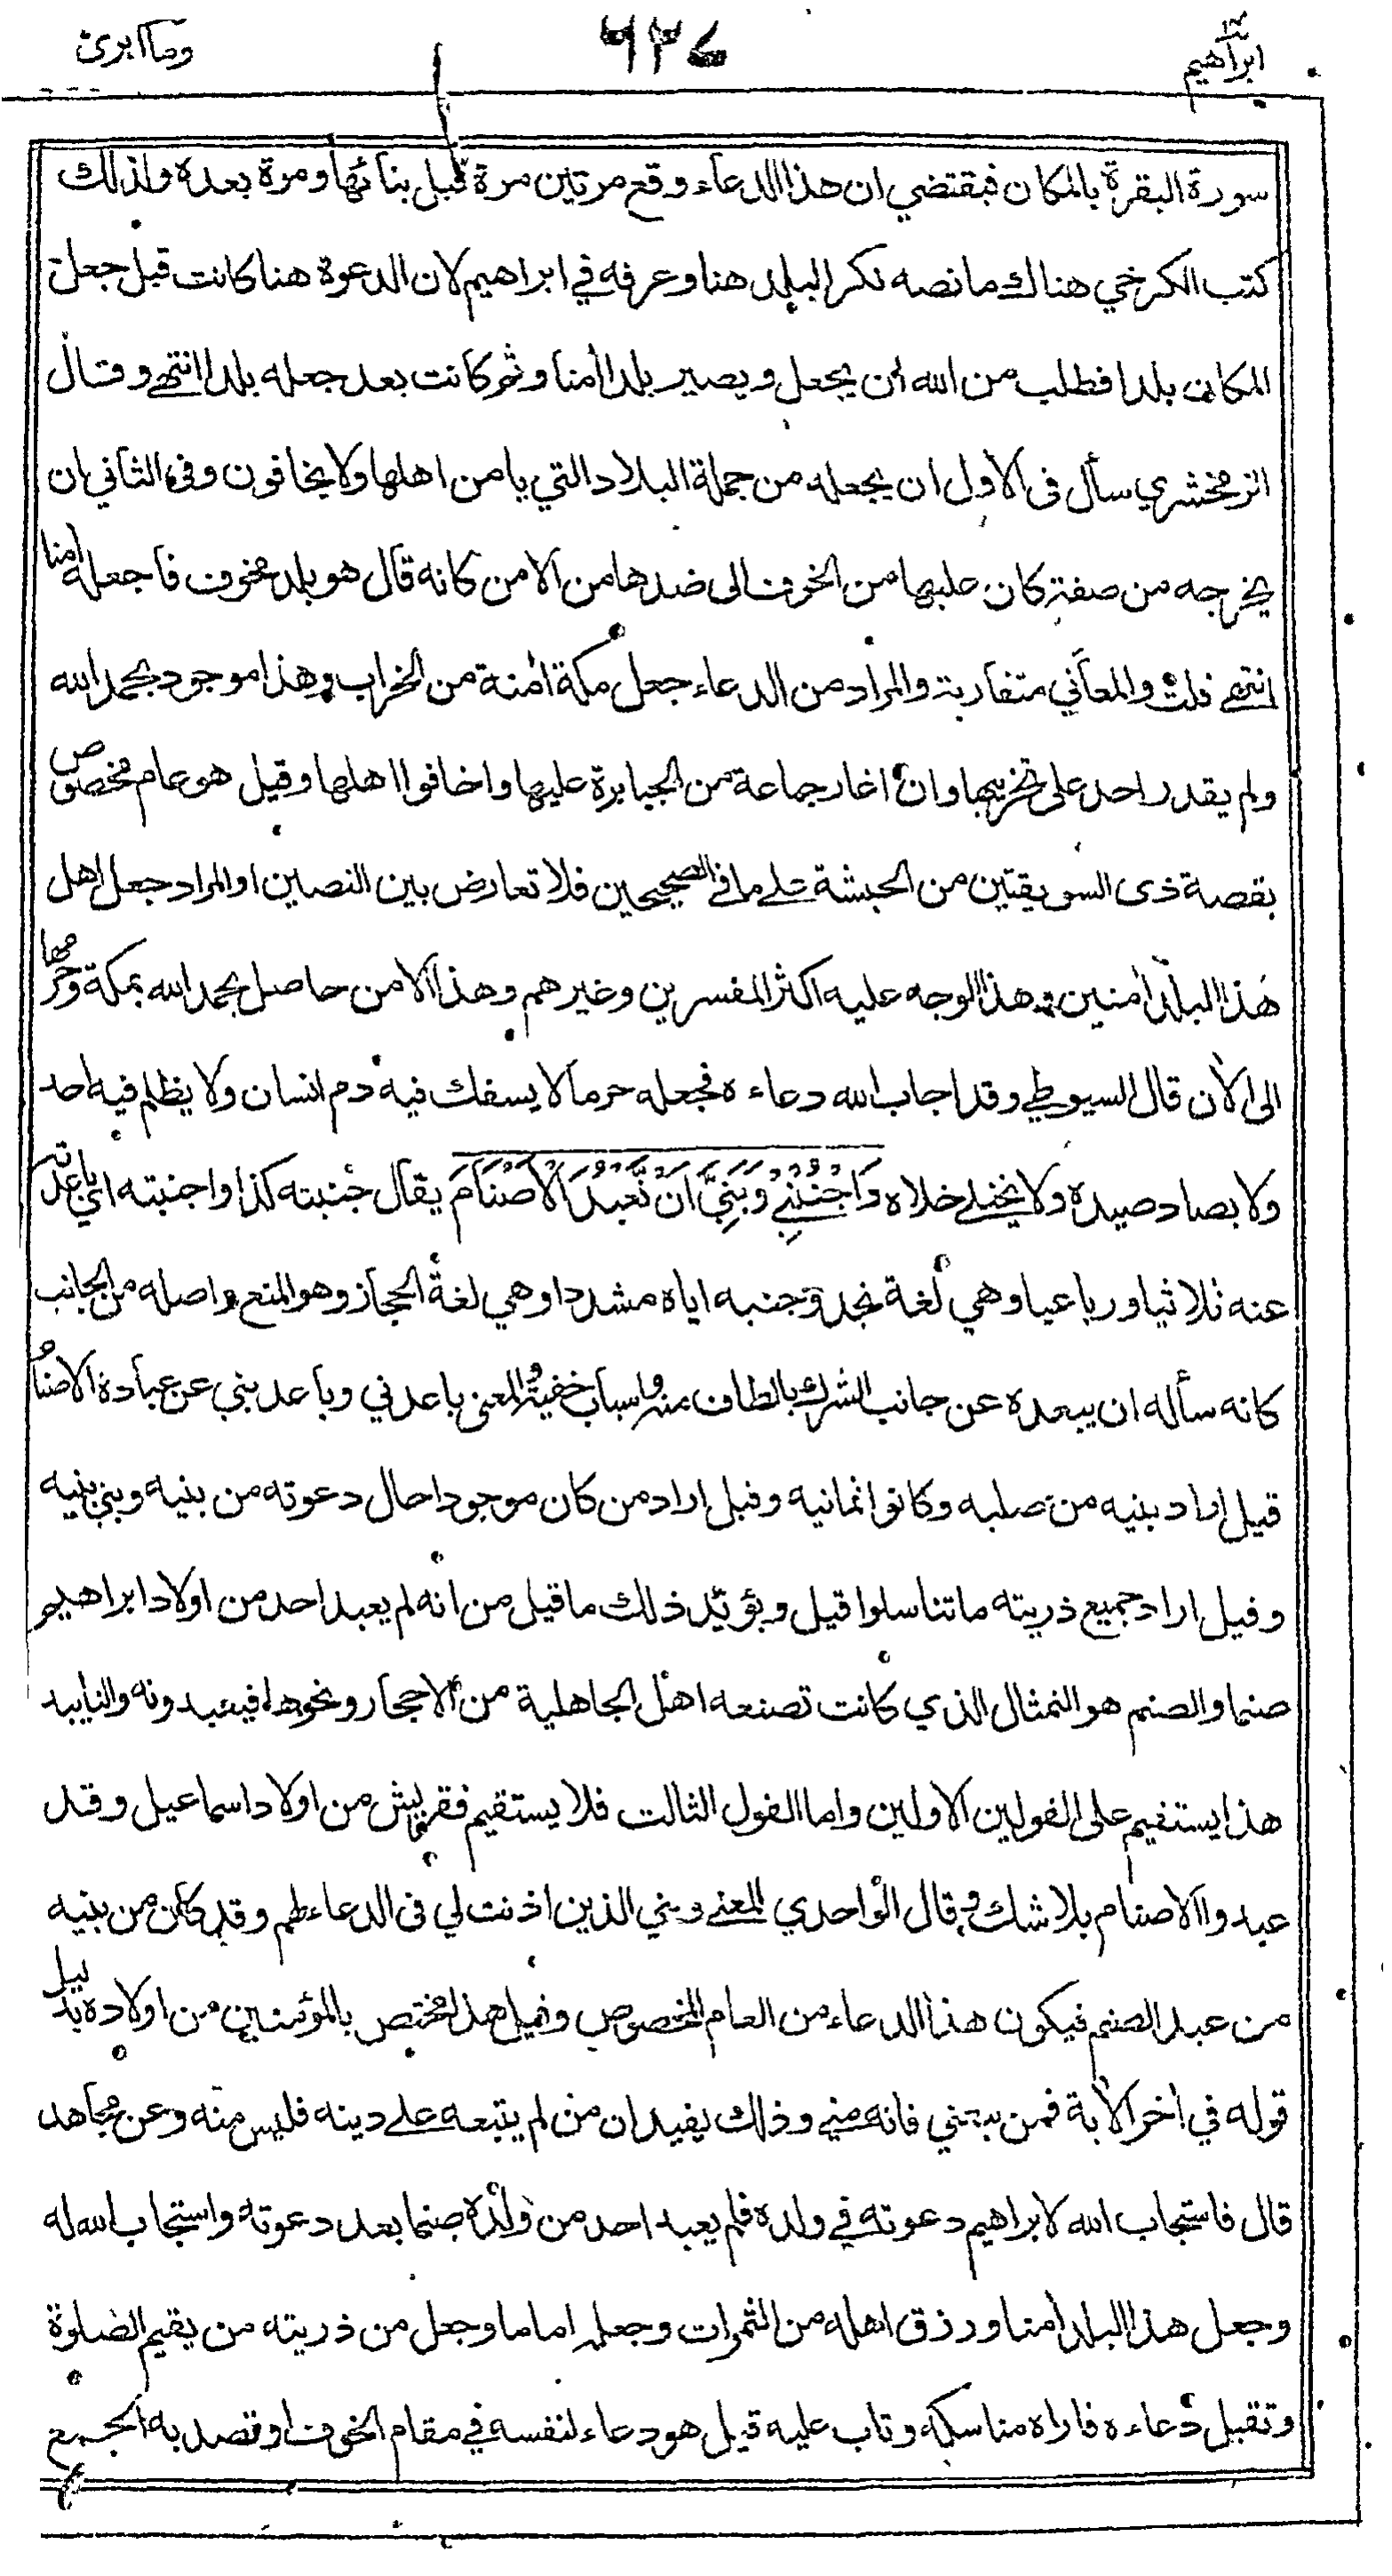 ابراهيم ١٤
٩٣٧
وما ابرئ
سورة البقرة بالمكان فيقتضي ان هذا الدعاء وقع مرتين مرة قبل بنائها ومرة بعده ولذلك
كتب الكرخي هناك ما نصه نكر البلد هنا وعرفه في ابراهيم لان الدعوة هنا كانت قبل جعل
المكان بلدا فطلب من الله ان يجعل ويصير بلدا اٰمنا وثم كانت بعد جعله بلدا انتهى وقال
الزمخشري سأل في الاول ان يجعله من جملة البلاد التي يامن اهلها ولا يخافون وفي الثاني ان
يخرجه من صفة كان عليها من الخوف الى ضدها من الامن كانه قال هو بلد مخوف فاجعله اٰمنا
انتهى قلت والمعاني متقاربة والمراد من الدعاء جعل مكة اٰمنة من الخراب وهذا موجود بحمد الله
ولم يقدر احد على تخريبها وان اغار جماعة من الجبابرة عليها واخافوا اهلها وقيل هو عام مخصوص
بقصة ذى السويقتين من الحبشة على ما في الصحيحين فلا تعارض بين النصين او المراد جعل اهل
هذا البلد اٰمنين وهذا الوجه عليه اكثر المفسرين وغيرهم وهذا الامن حاصل بحمد الله بمكة وحرمها
الى الاٰن قال السيوطي وقد اجاب الله دعاءه فجعله حرما لا يسفك فيه دم انسان ولا يظلم فيه احد
ولا يصاد صيده ولا يختلى خلاه وَاجْنُبْنِي وَبَنِيَّ اَنْ نَّعْبُدَ الْاَصْنَامَ يقال جنبته كذا واجنبته اي باعدته
عنه ثلاثيا ورباعيا وهي لغة نجد وجنبه اياه مشددا وهي لغة الحجاز وهو المنع واصله من الجانب
كانه سأله ان يبعده عن جانب الشرك بالطاف منه واسباب خفية والمعنى باعدني وباعد بني عن عبادة الاصنام
قيل اراد بنيه من صلبه وكانوا ثمانيه وقيل اراد من كان موجودا حال دعوته من بنيه وبني بنيه
وقيل اراد جميع ذريته ما تناسلوا قيل ويؤيد ذلك ما قيل من انه لم يعبد احد من اولاد ابراهيم
صنما والصنم هو التمثال الذي كانت تصنعه اهل الجاهلية من الاحجار ونحوها فيعبدونه والتاييد
هذا يستقيم على القولين الاولين واما القول الثالث فلا يستقيم فقريش من اولاد اسماعيل وقد
عبدوا الاصنام بلا شك وقال الواحدي المعنى وبني الذين اذنت لي في الدعاء لهم وقد كان من بنيه
من عبد الصنم فيكون هذا الدعاء من العام المخصوص وقيل هذا مختص بالمؤمنين من اولاده بدليل
قوله في اٰخر الاٰية فمن تبعني فانه مني وذلك يفيد ان من لم يتبعه على دينه فليس منه وعن مجاهد
قال فاستجاب الله لابراهيم دعوته في ولده فلم يعبد احد من ولده صنما بعد دعوته واستجاب الله له
وجعل هذا البلد اٰمنا ورزق اهله من الثمرات وجعله اماما وجعل من ذريته من يقيم الصلوة
وتقبل دعاءه فاراه مناسكه وتاب عليه قيل هو دعاء لنفسه في مقام الخوف او قصد به الجمع